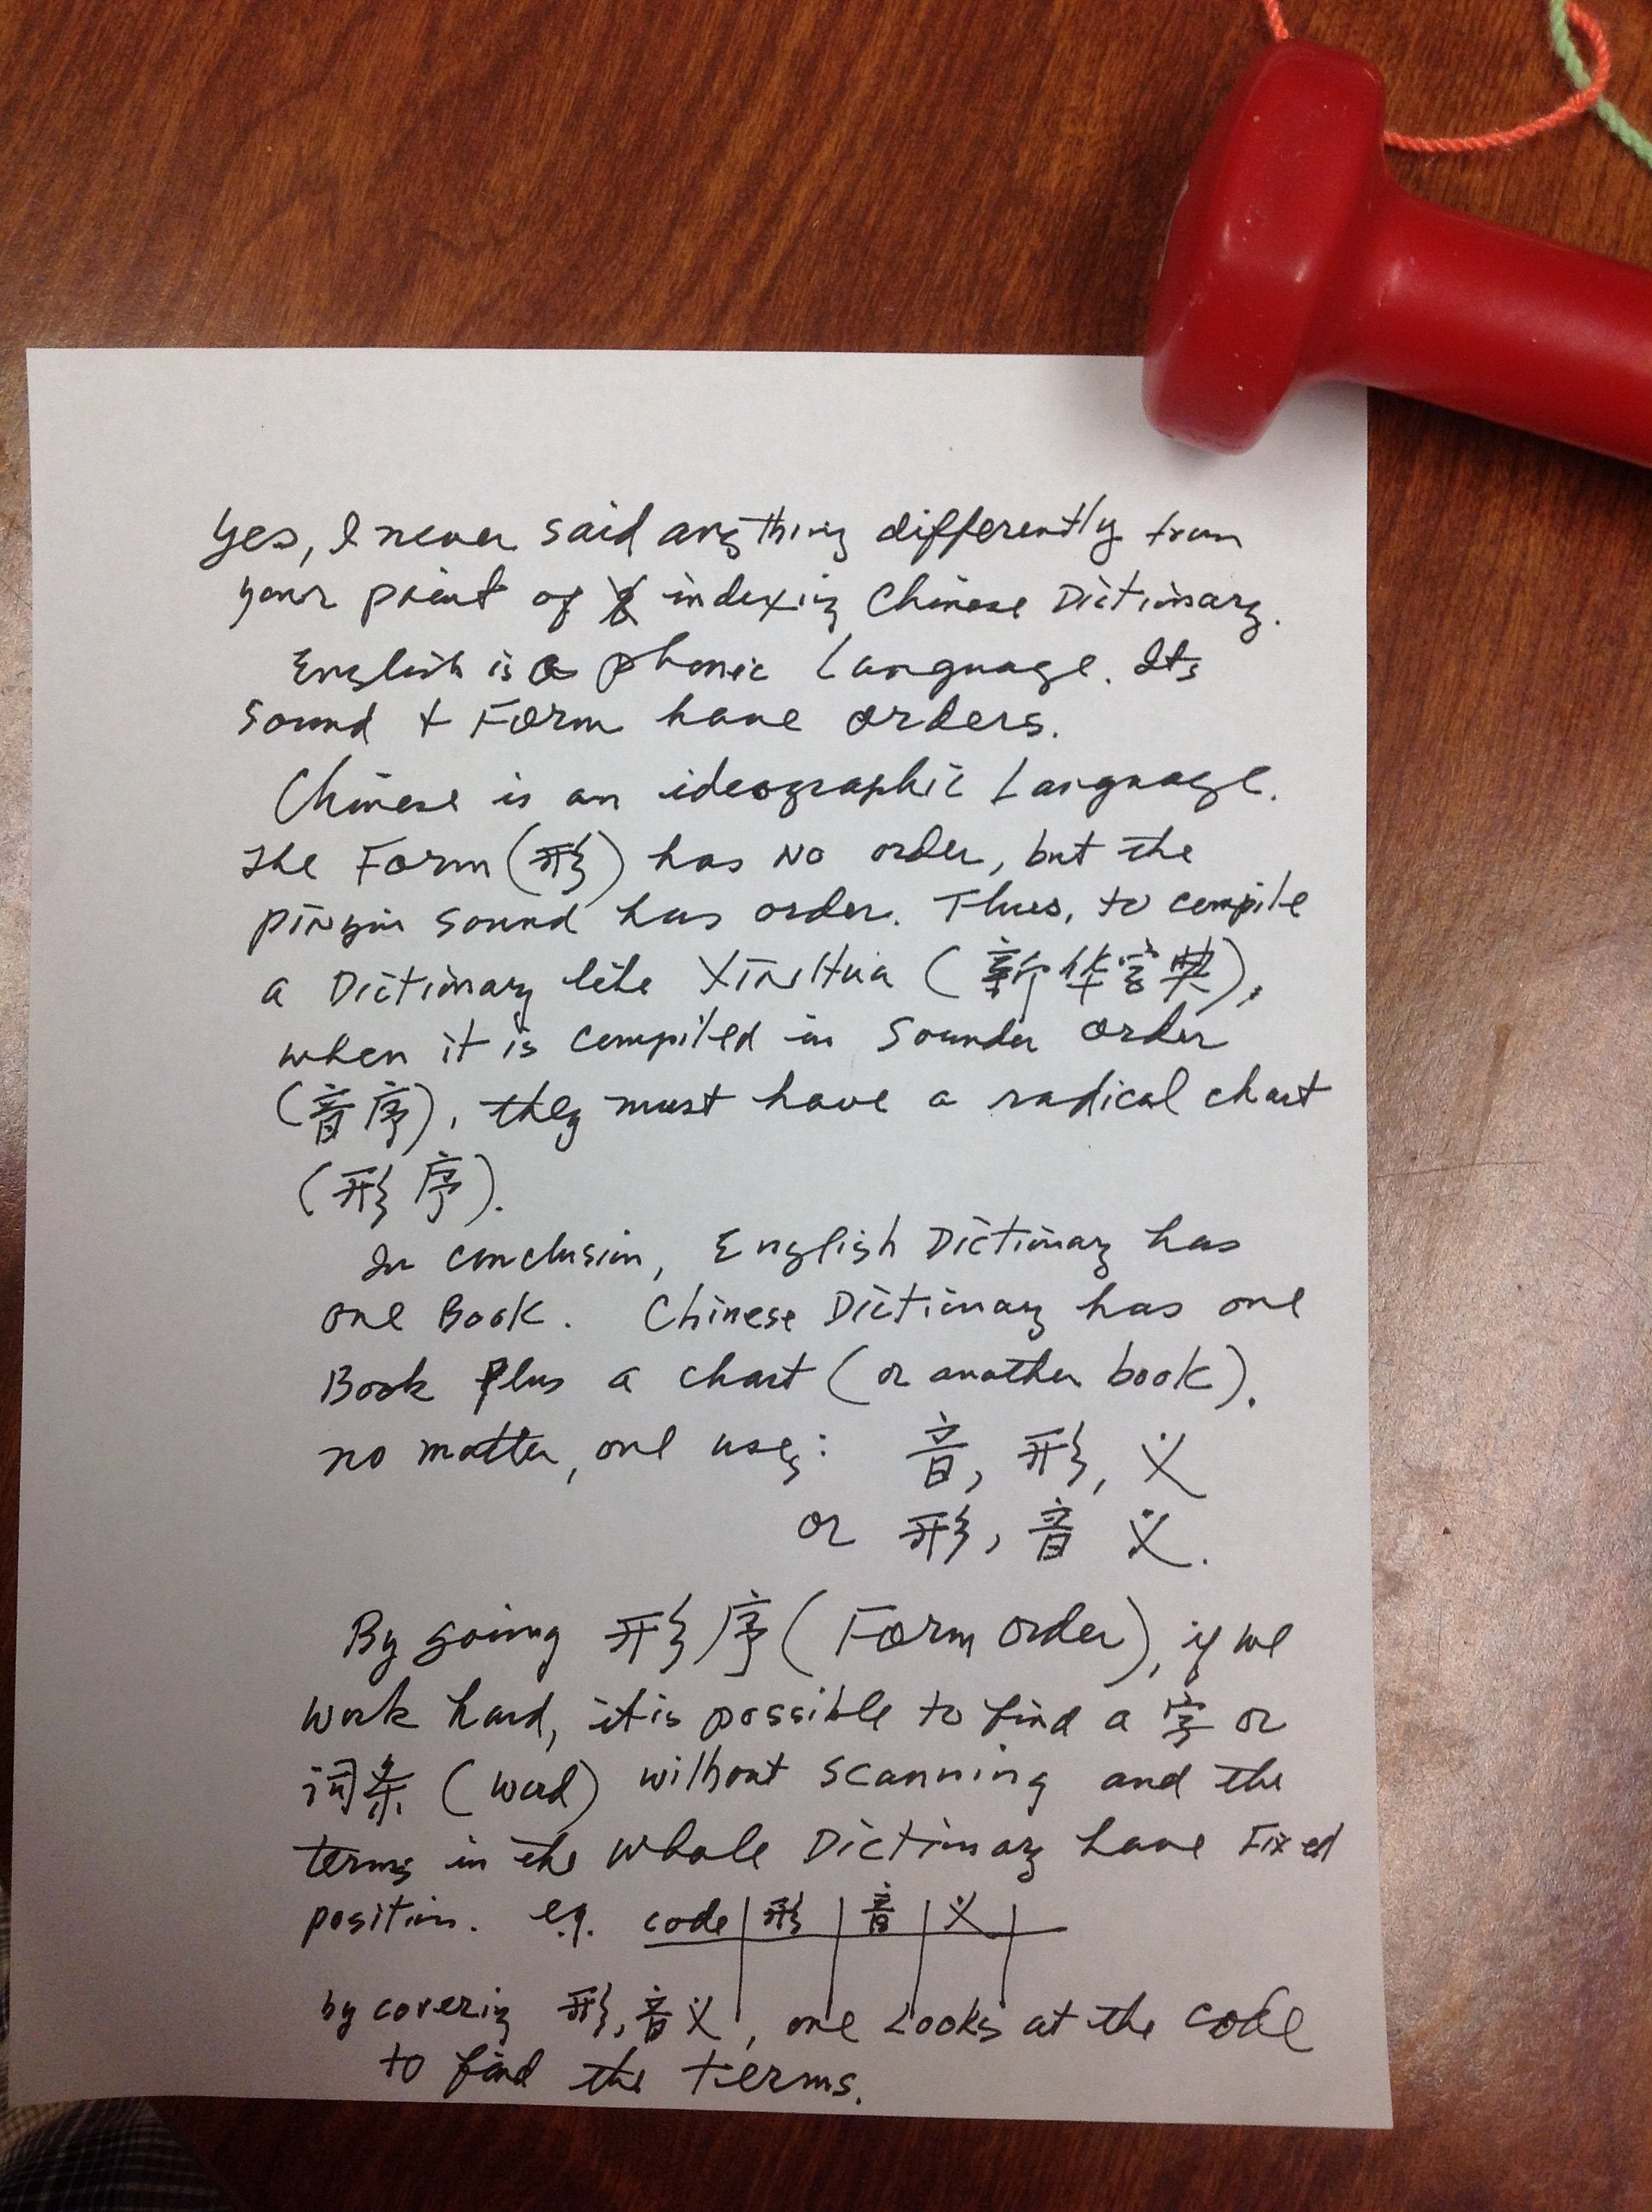 Yes, I never said anything differently from
your point of indexing Chinese Dictionary.
English is a phonic Language. Its
Sound + Form have orders.
Chinese is an ideographic Language.
The Form (形) has No order, but the
pinyin sound has order. Thus, to compile
a Dictionary like XinHua (新华字典),
when it is compiled in Sounder order
(音序), they must have a radical chart
(形序).
In conclusion, English Dictionary has
one Book. Chinese Dictionary has one
Book Plus a chart (or another book).
no matter, one uses: 音, 形, 义
or 形, 音 义.
By going 形序 (Form order), if we
work hard, it is possible to find a 字 or
词条 (word) without scanning and the
terms in the whole Dictionary have Fixed
position. e.g. code | 形 | 音 | 义 |
by covering 形, 音义, one Looks at the code
to find the terms.